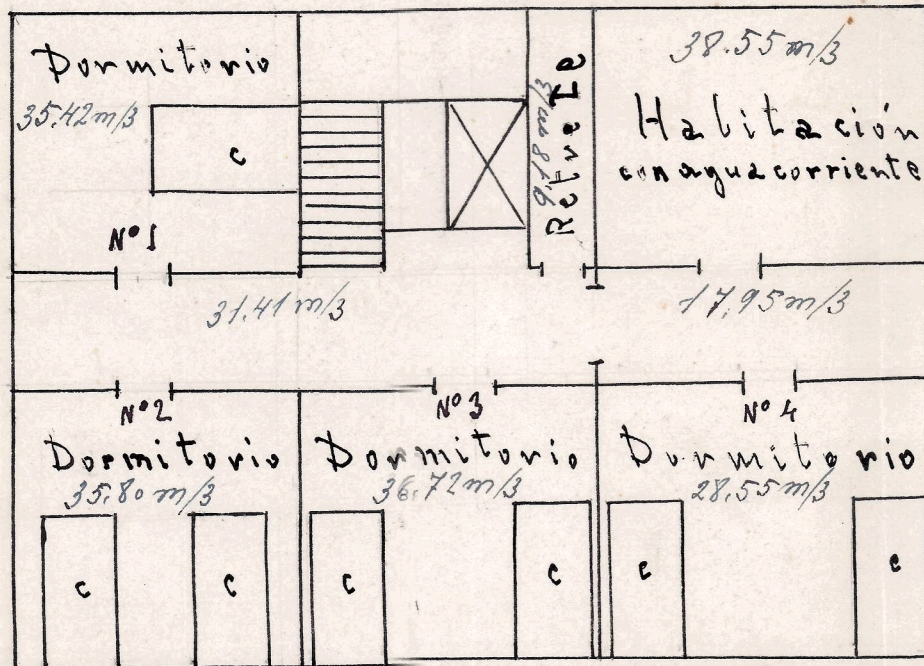 Dormitorio
35.42 m/3
c
Nº 1
9,18 m/3
Retrete
38.55 m/3
Habitación
con agua corriente
31.41 m/3
17,95 m/3
Nº 2
Dormitorio
35.80 m/3
c
c
Nº 3
Dormitorio
36.72 m/3
c
c
Nº 4
Dormitorio
28.55 m/3
c
c